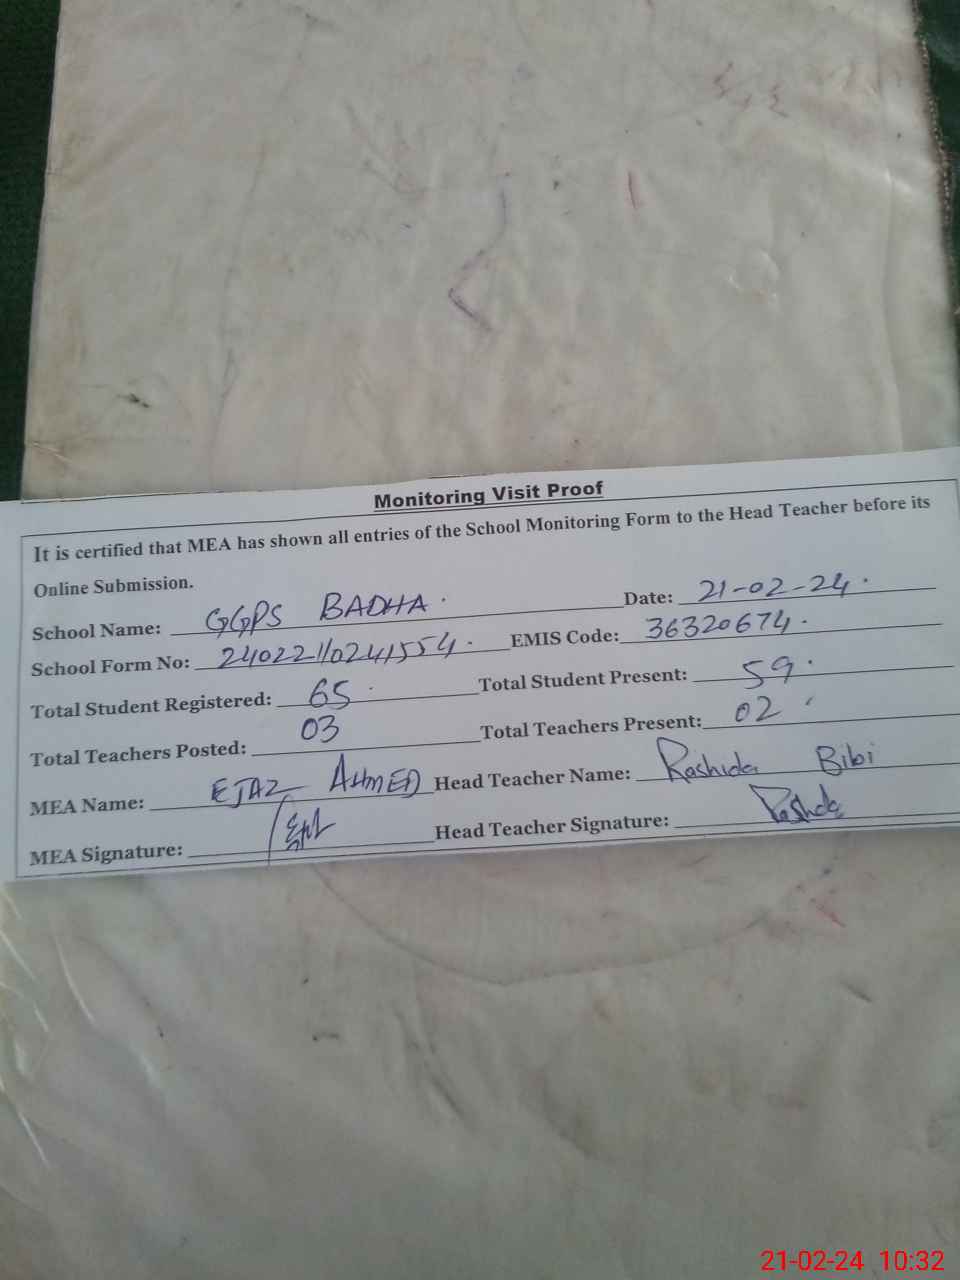 Monitoring Visit Proof
It is certified that MEA has shown all entries of the School Monitoring Form to the Head Teacher before its
Online Submission.
School Name: GGPS BADHA. Date: 21-02-24.
School Form No: 24022110241554. EMIS Code: 36320674.
Total Student Registered: 65. Total Student Present: 59.
Total Teachers Posted: 03 Total Teachers Present: 02
MEA Name: EJAZ AHMED Head Teacher Name: Rashida Bibi
MEA Signature: Head Teacher Signature: Rashda
21-02-24 10:32